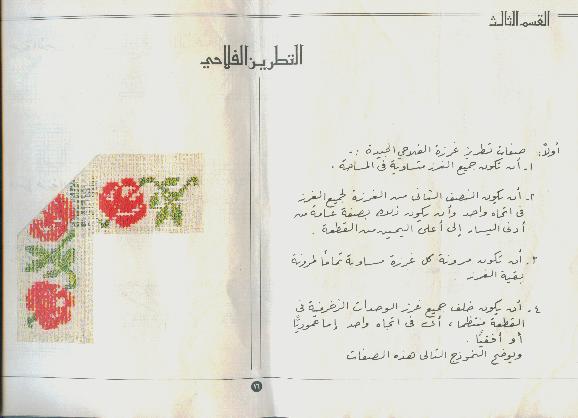 القسم الثالث
التطريز الفلاحي
أولاً: صفات تطريز غرزة الفلاحي الجيدة :-
١- أن تكون جميع الغرز متساوية في المساحة .
٢- أن يكون النصف الثاني من الغرزة لجميع الغرز
في اتجاه واحد وأن يكون ذلك بصفة عامة من
أدنى اليسار إلى أعلى اليمين من القطعة .
٣- أن تكون مرونة كل غرزة مساوية تمامًا لمرونة
بقية الغرز .
٤- أن يكون خلف جميع غرز الوحدات الزخرفية في
القطعة منتظما، أى في اتجاه واحد إما عموديًا
أو أفقيًا .
ويوضح النموذج التالى هذه الصفات
٧٦